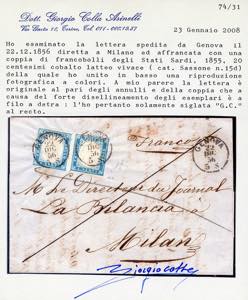 74/31
Dott. Giorgio Colla Asinelli
Via Giusti 10, Torino, Cod. 011-
23 Gennaio 2008
Ho esaminato la lettera spedita da Genova il
22.12.1856 diretta a Milano ed affrancata con una
coppia di francobolli degli Stati Sardi, 1855, 20
centesimi cobalto latteo vivace ( cat. Sassone n.15d)
della quale ho unito in basso una riproduzione
fotografica a colori. A mio parere la lettera è
originale al pari degli annulli e della coppia che a
causa del forte disellineamento degli esemplari è a
filo a destra : l'ho pertanto solamente siglata "G.C."
al recto.
Franco
GENOVA
22
DIC
56
M.r le Directeur du Journal
La Bilancia
Milan
Giorgio Colla